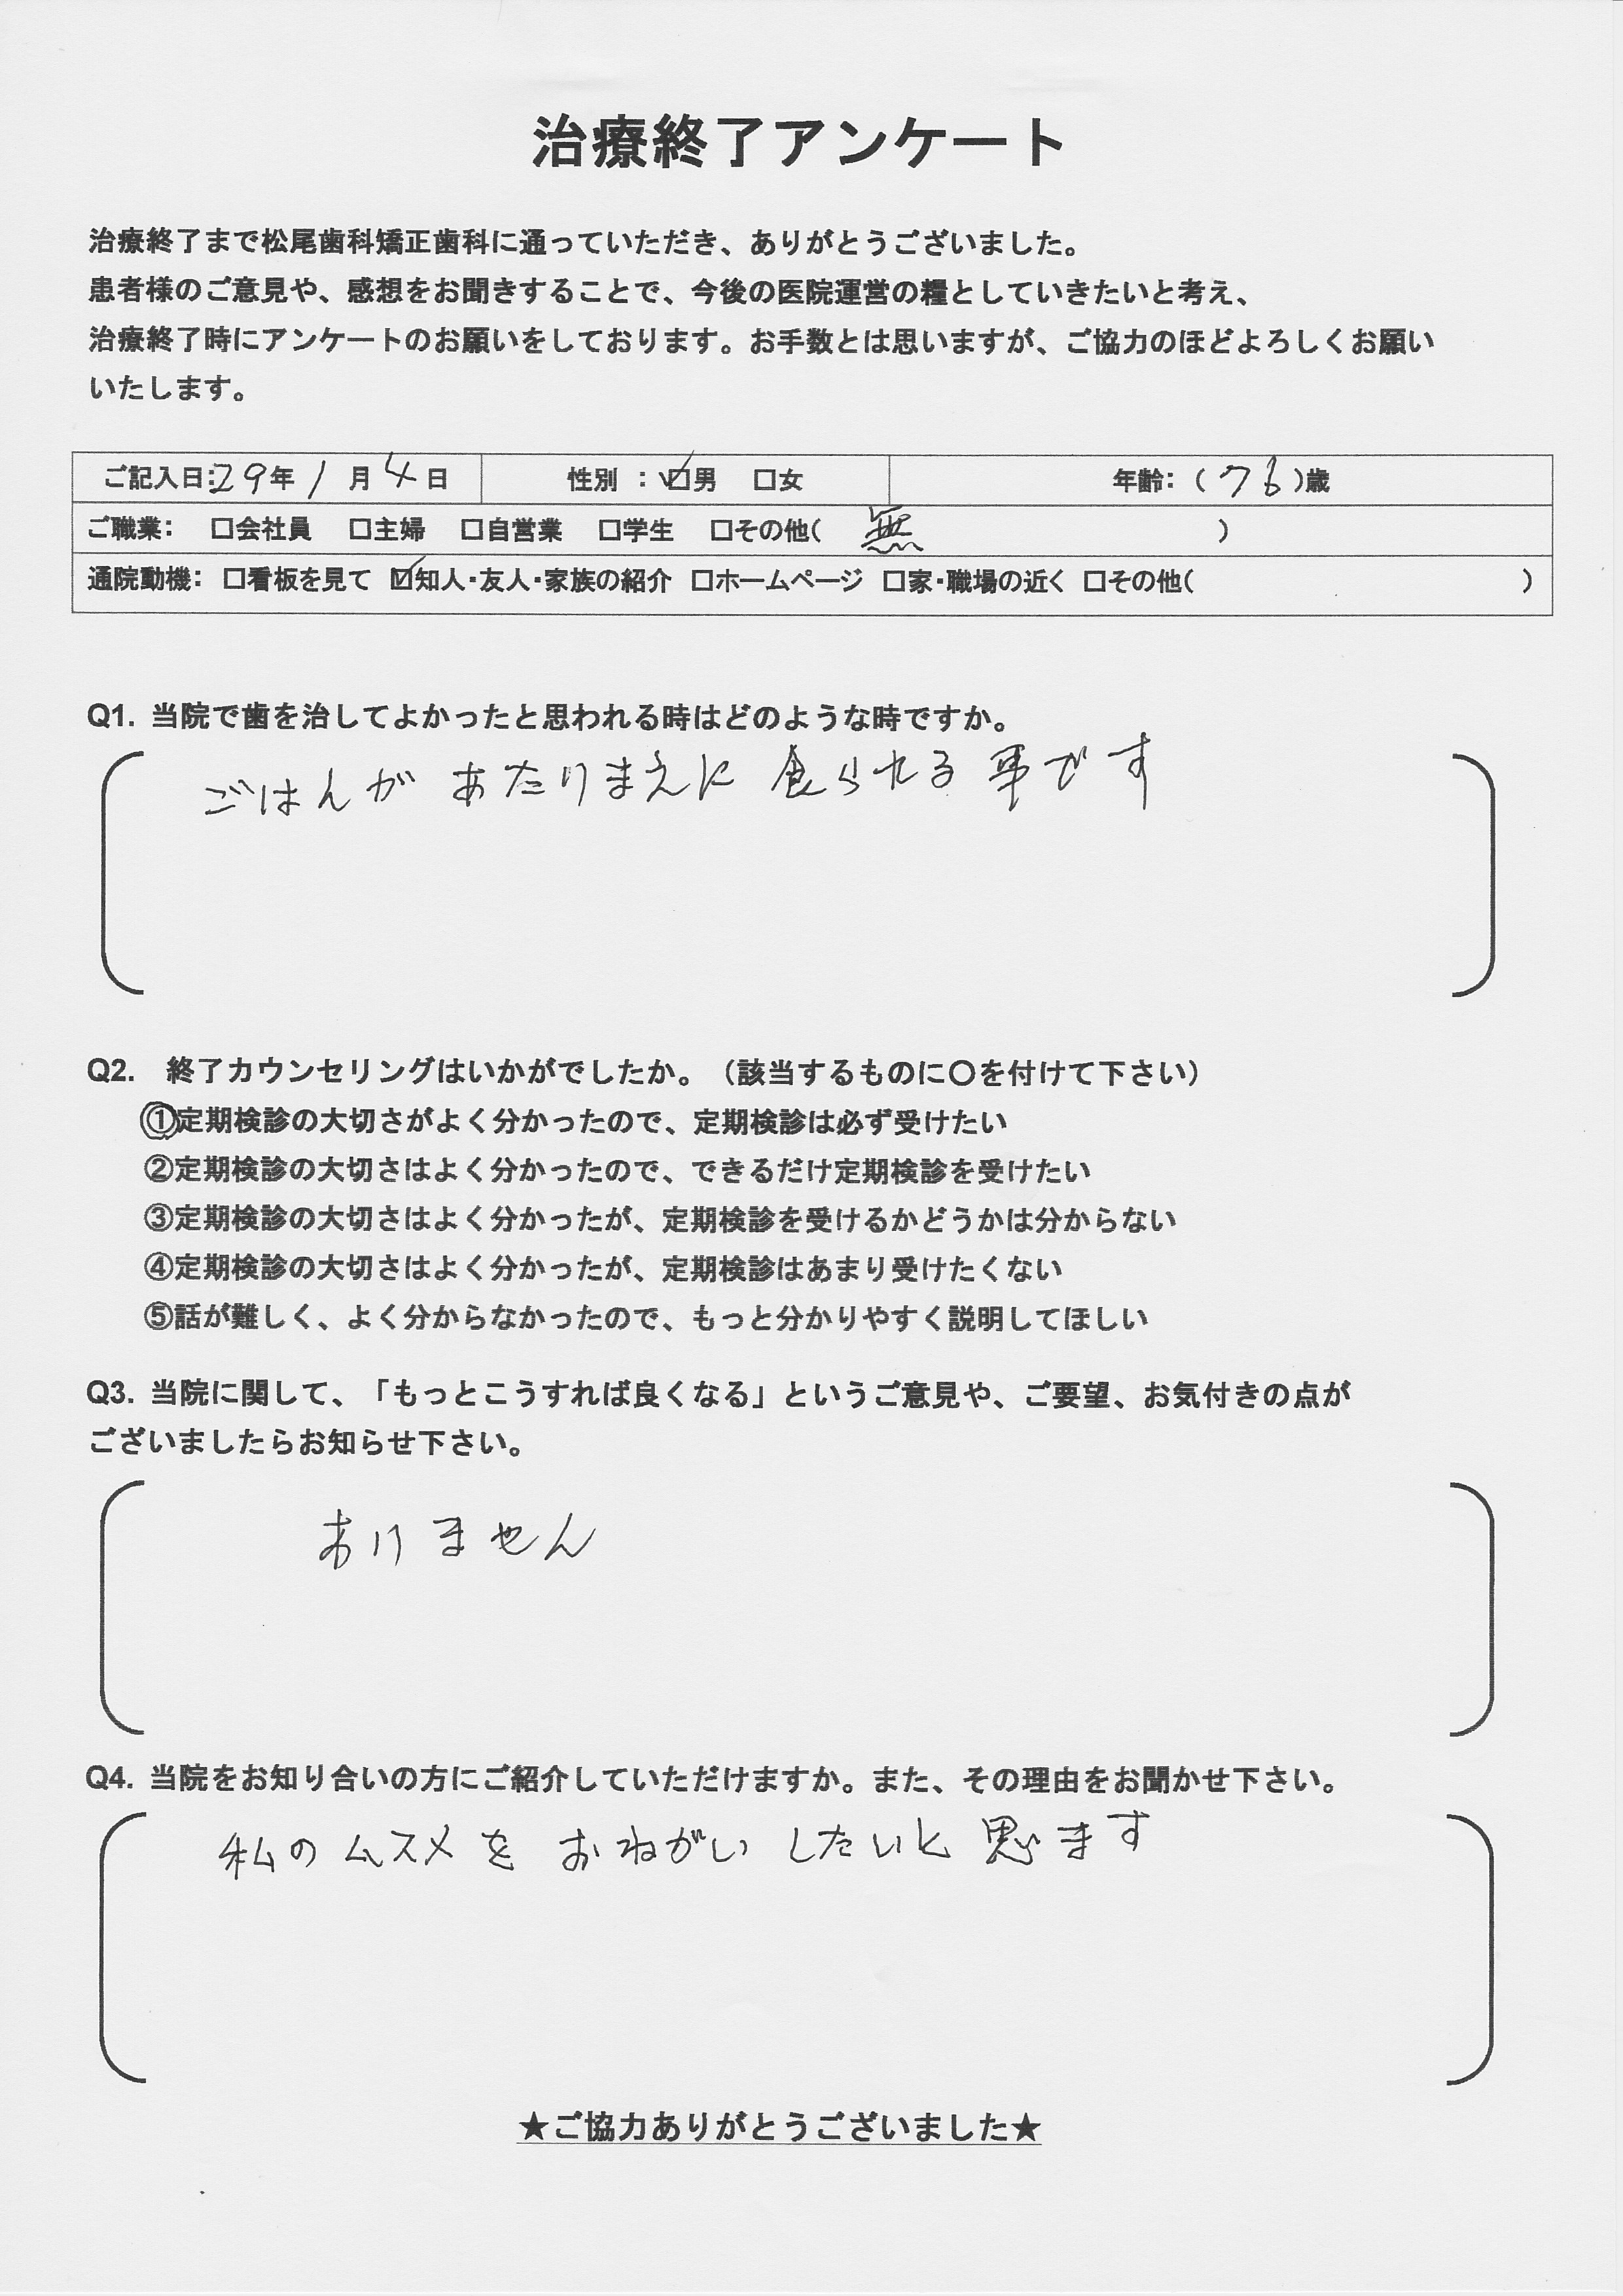 治療終了アンケート
治療終了まで松尾歯科矯正歯科に通っていただき、ありがとうございました。
患者様のご意見や、感想をお聞きすることで、今後の医院運営の糧としていきたいと考え、
治療終了時にアンケートのお願いをしております。お手数とは思いますが、ご協力のほどよろしくお願い
いたします。
ご記入日:29年1月4日 性別 : ☑男 □女 年齢:(76)歳
ご職業: □会社員 □主婦 □自営業 □学生 □その他( 無 )
通院動機: □看板を見て ☑知人・友人・家族の紹介 □ホームページ □家・職場の近く □その他( )
Q1. 当院で歯を治してよかったと思われる時はどのような時ですか。
ごはんが あたりまえに 食られる 事です
Q2. 終了カウンセリングはいかがでしたか。(該当するものに〇を付けて下さい)
①定期検診の大切さがよく分かったので、定期検診は必ず受けたい
②定期検診の大切さはよく分かったので、できるだけ定期検診を受けたい
③定期検診の大切さはよく分かったが、定期検診を受けるかどうかは分からない
④定期検診の大切さはよく分かったが、定期検診はあまり受けたくない
⑤話が難しく、よく分からなかったので、もっと分かりやすく説明してほしい
Q3. 当院に関して、「もっとこうすれば良くなる」というご意見や、ご要望、お気付きの点が
ございましたらお知らせ下さい。
ありません
Q4. 当院をお知り合いの方にご紹介していただけますか。また、その理由をお聞かせ下さい。
私のムスメを おねがい したいと 思ます
★ご協力ありがとうございました★